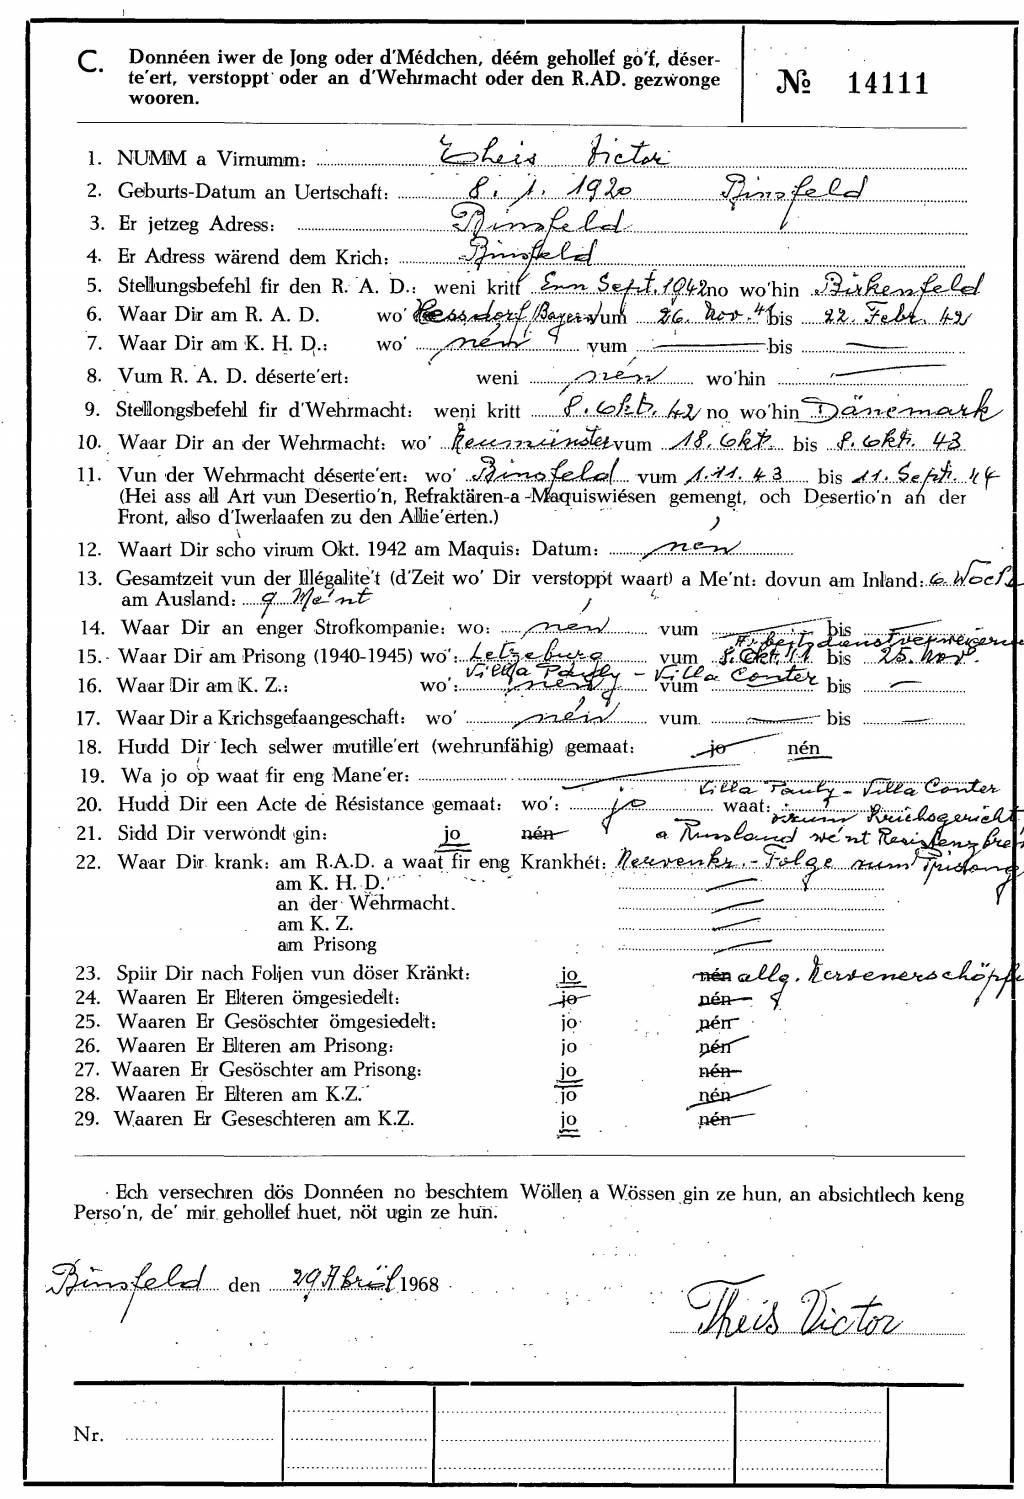 C. Donnéen iwer de Jong oder d'Médchen, déém gehollef go'f, déser-
te'ert, verstoppt oder an d'Wehrmacht oder den R.AD. gezwonge
wooren.
№ 14111
1. NUMM a Virnumm: Theis Victor
2. Geburts-Datum an Uertschaft: 8. 1. 1920 Binsfeld
3. Er jetzeg Adress: Binsfeld
4. Er Adress wärend dem Krich: Binsfeld
5. Stellungsbefehl fir den R. A. D.: weni kritt Enn Sept. 1942 no wo'hin Birkenfeld
6. Waar Dir am R. A. D. wo' Hessdorf/Bayern vum 26. Nov. 41 bis 22. Febr. 42
7. Waar Dir am K. H. D.: wo' nén vum — bis —
8. Vum R. A. D. déserte'ert: weni nén wo'hin —
9. Stellongsbefehl fir d'Wehrmacht: weni kritt 8. Okt. 42 no wo'hin Dänemark
10. Waar Dir an der Wehrmacht: wo' Neumünster vum 18. Okt. bis 8. Okt. 43
11. Vun der Wehrmacht déserte'ert: wo' Binsfeld vum 1.11. 43 bis 11. Sept. 44
(Hei ass all Art vun Desertio'n, Refraktären-a-Maquiswiésen gemengt, och Desertio'n an der
Front, also d'Iwerlaafen zu den Allie'erten.)
12. Waart Dir scho virum Okt. 1942 am Maquis: Datum: nén
13. Gesamtzeit vun der Illégalite't (d'Zeit wo' Dir verstoppt waart) a Me'nt: dovun am Inland: 6 Woch
am Ausland: 9 Me'nt
14. Waar Dir an enger Strofkompanie: wo: nén vum — bis —
Arbeitsdienstverweigerun
15. Waar Dir am Prisong (1940-1945) wo': Letzeburg vum 8. Okt. 41 bis 25. Nov.
Villa Pauly - Villa Conter
16. Waar Dir am K. Z.: wo': nén vum bis —
17. Waar Dir a Krichsgefaangeschaft: wo' nén vum — bis —
18. Hudd Dir Iech selwer mutille'ert (wehrunfähig) gemaat: jo nén
19. Wa jo op waat fir eng Mane'er: —
Villa Pauly - Villa Conter
20. Hudd Dir een Acte de Résistance gemaat: wo': jo waat: virum Krichsgericht
21. Sidd Dir verwondt gin: jo nén a Russland we'nt Resistenz
22. Waar Dir krank: am R.A.D. a waat fir eng Krankhét: Nervenkr. - Folge vum Prisong
am K. H. D. —
an der Wehrmacht. —
am K. Z. —
am Prisong —
23. Spiir Dir nach Foljen vun döser Kränkt: jo nén allg. Nervenerschöpf
24. Waaren Er Elteren ömgesiedelt: jo nén
25. Waaren Er Gesöschter ömgesiedelt: jo nén
26. Waaren Er Elteren am Prisong: jo nén
27. Waaren Er Gesöschter am Prisong: jo nén
28. Waaren Er Elteren am K.Z. jo nén
29. Waaren Er Geseschteren am K.Z. jo nén
Ech versechren dös Donnéen no beschtem Wöllen a Wössen gin ze hun, an absichtlech keng
Perso'n, de' mir gehollef huet, nöt ugin ze hun.
Binsfeld den 29 Abril 1968
Theis Victor
Nr.